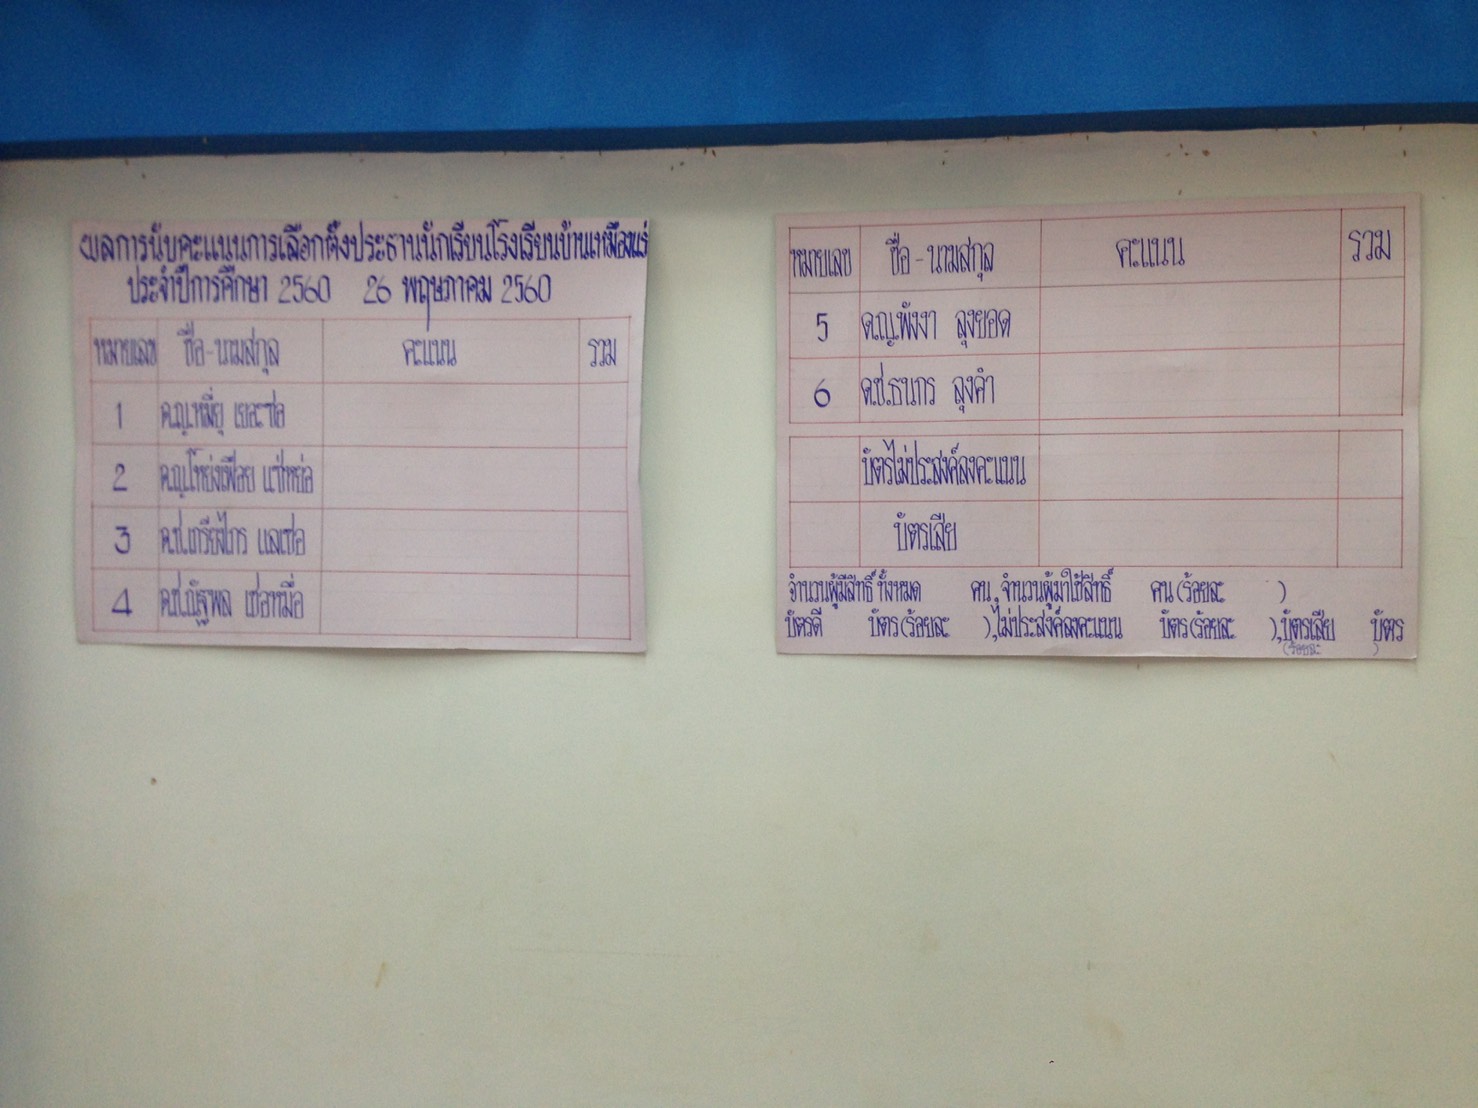 ผลการนับคะแนนการเลือกตั้งประธานนักเรียนโรงเรียนบ้านเหมืองแร่
ประจำปีการศึกษา 2560 26 พฤษภาคม 2560
หมายเลข ชื่อ-นามสกุล คะแนน รวม
1 ด.ญ.หมี่ยุ เยอะซอ
2 ด.ญ.โหย่งเฟือย แซ่หย่อ
3 ด.ช.เกรียงไกร แลเซอ
4 ด.ช.ณัฐพล เซอหมื่อ
หมายเลข ชื่อ-นามสกุล คะแนน รวม
5 ด.ญ.พังงา ลุงยอด
6 ด.ช.ธนกร ลุงคำ
บัตรไม่ประสงค์ลงคะแนน
บัตรเสีย
จำนวนผู้มีสิทธิ์ทั้งหมด คน, จำนวนผู้มาใช้สิทธิ์ คน (ร้อยละ )
บัตรดี บัตร (ร้อยละ ), ไม่ประสงค์ลงคะแนน บัตร (ร้อยละ ), บัตรเสีย บัตร
(ร้อยละ )